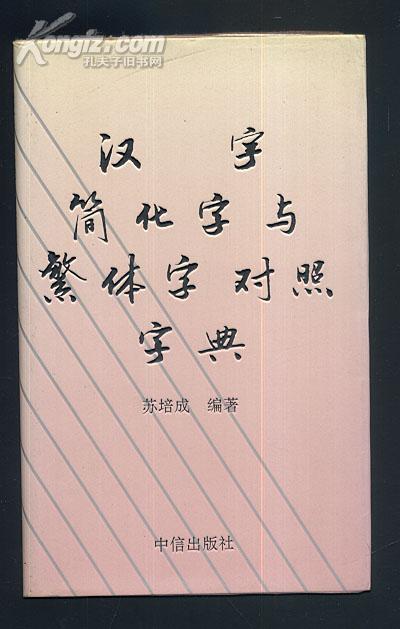 Kongfz.com
孔夫子旧书网
汉 字
简化字与
繁体字对照
字典
苏培成 编著
中信出版社